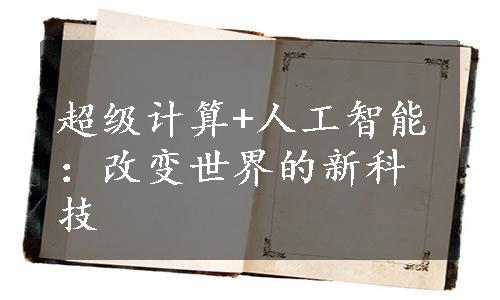 超级计算+人工智能
：改变世界的新科
技